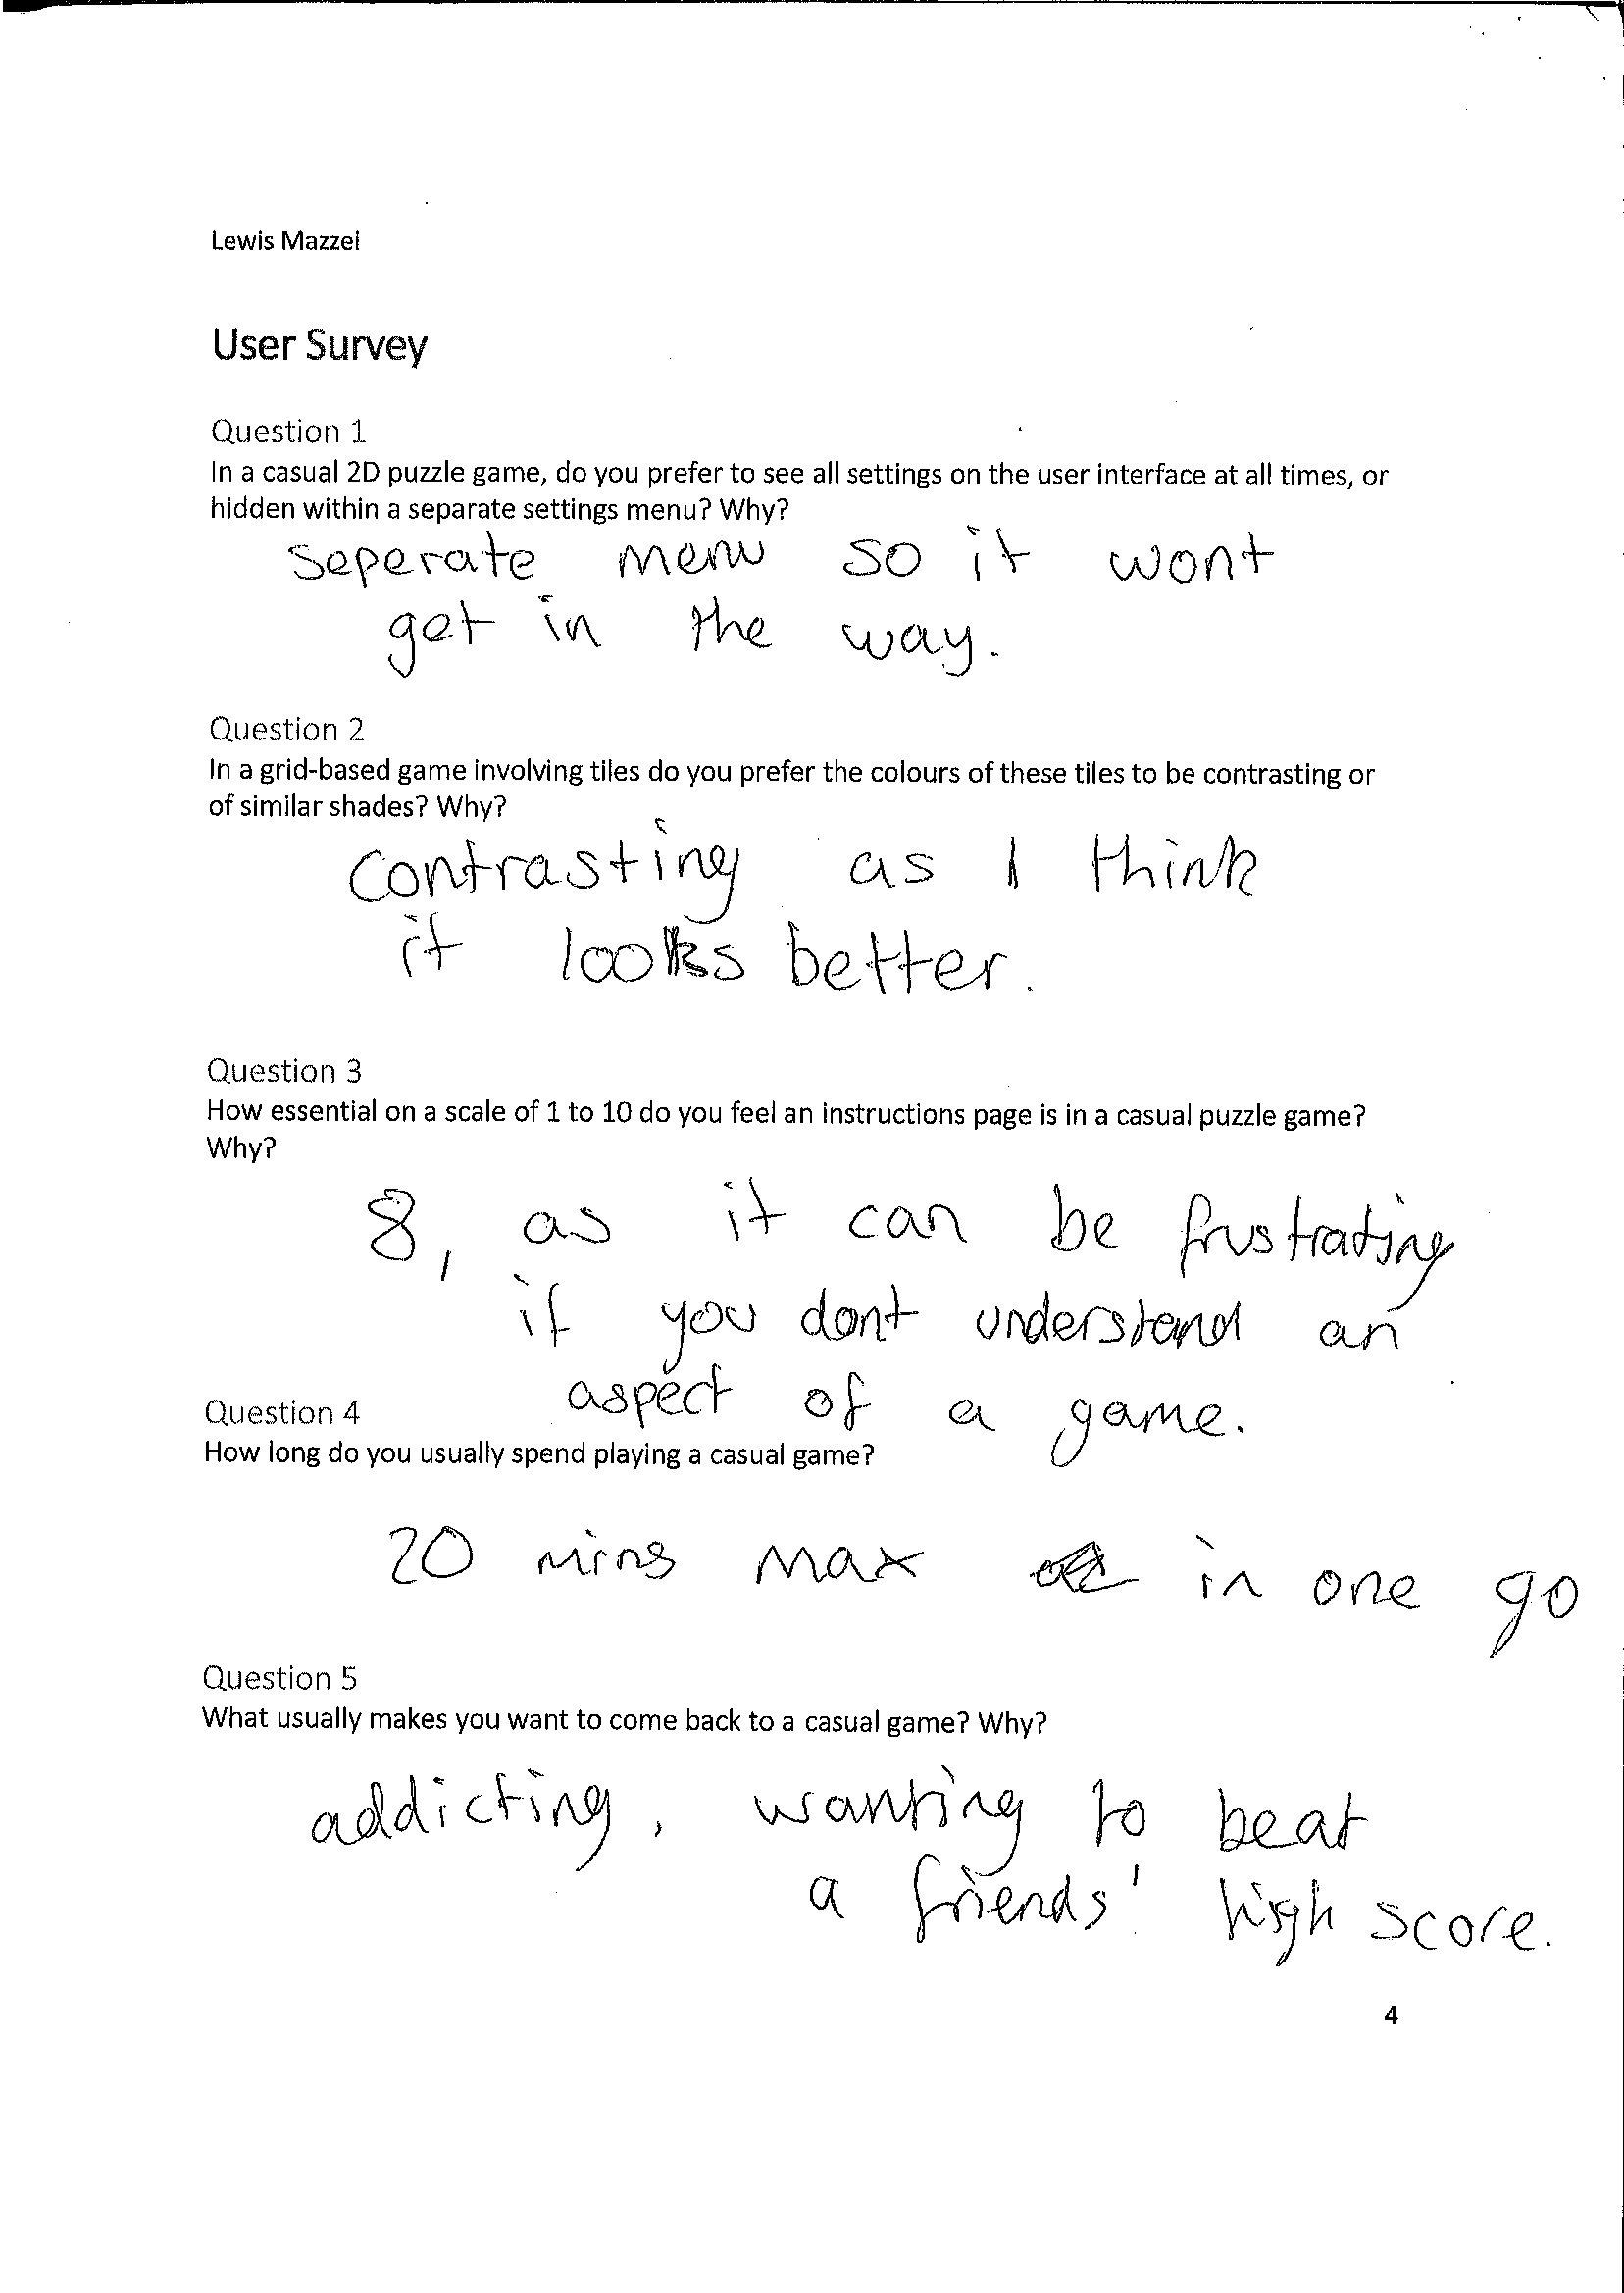 Lewis Mazzei
User Survey
Question 1
In a casual 2D puzzle game, do you prefer to see all settings on the user interface at all times, or
hidden within a separate settings menu? Why?
Seperate menu so it wont
get in the way.
Question 2
In a grid-based game involving tiles do you prefer the colours of these tiles to be contrasting or
of similar shades? Why?
Contrasting as I think
it looks better.
Question 3
How essential on a scale of 1 to 10 do you feel an instructions page is in a casual puzzle game?
Why?
8, as it can be frustrating
if you dont understand an
aspect of a game.
Question 4
How long do you usually spend playing a casual game?
20 mins max in one go
Question 5
What usually makes you want to come back to a casual game? Why?
addicting, wanting to beat
a friends' high score.
4